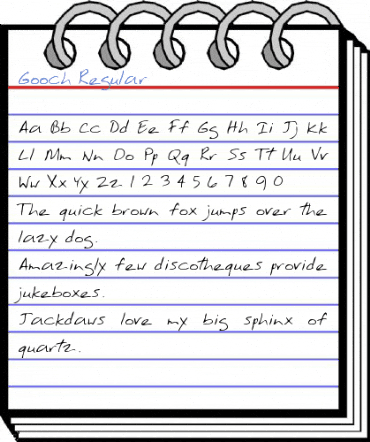 Gooch Regular
Aa Bb Cc Dd Ee Ff Gg Hh Ii Jj Kk
Ll Mm Nn Oo Pp Qq Rr Ss Tt Uu Vv
Ww Xx Yy Zz 1 2 3 4 5 6 7 8 9 0
The quick brown fox jumps over the
lazy dog.
Amazingly few discotheques provide
jukeboxes.
Jackdaws love my big sphinx of
quartz.